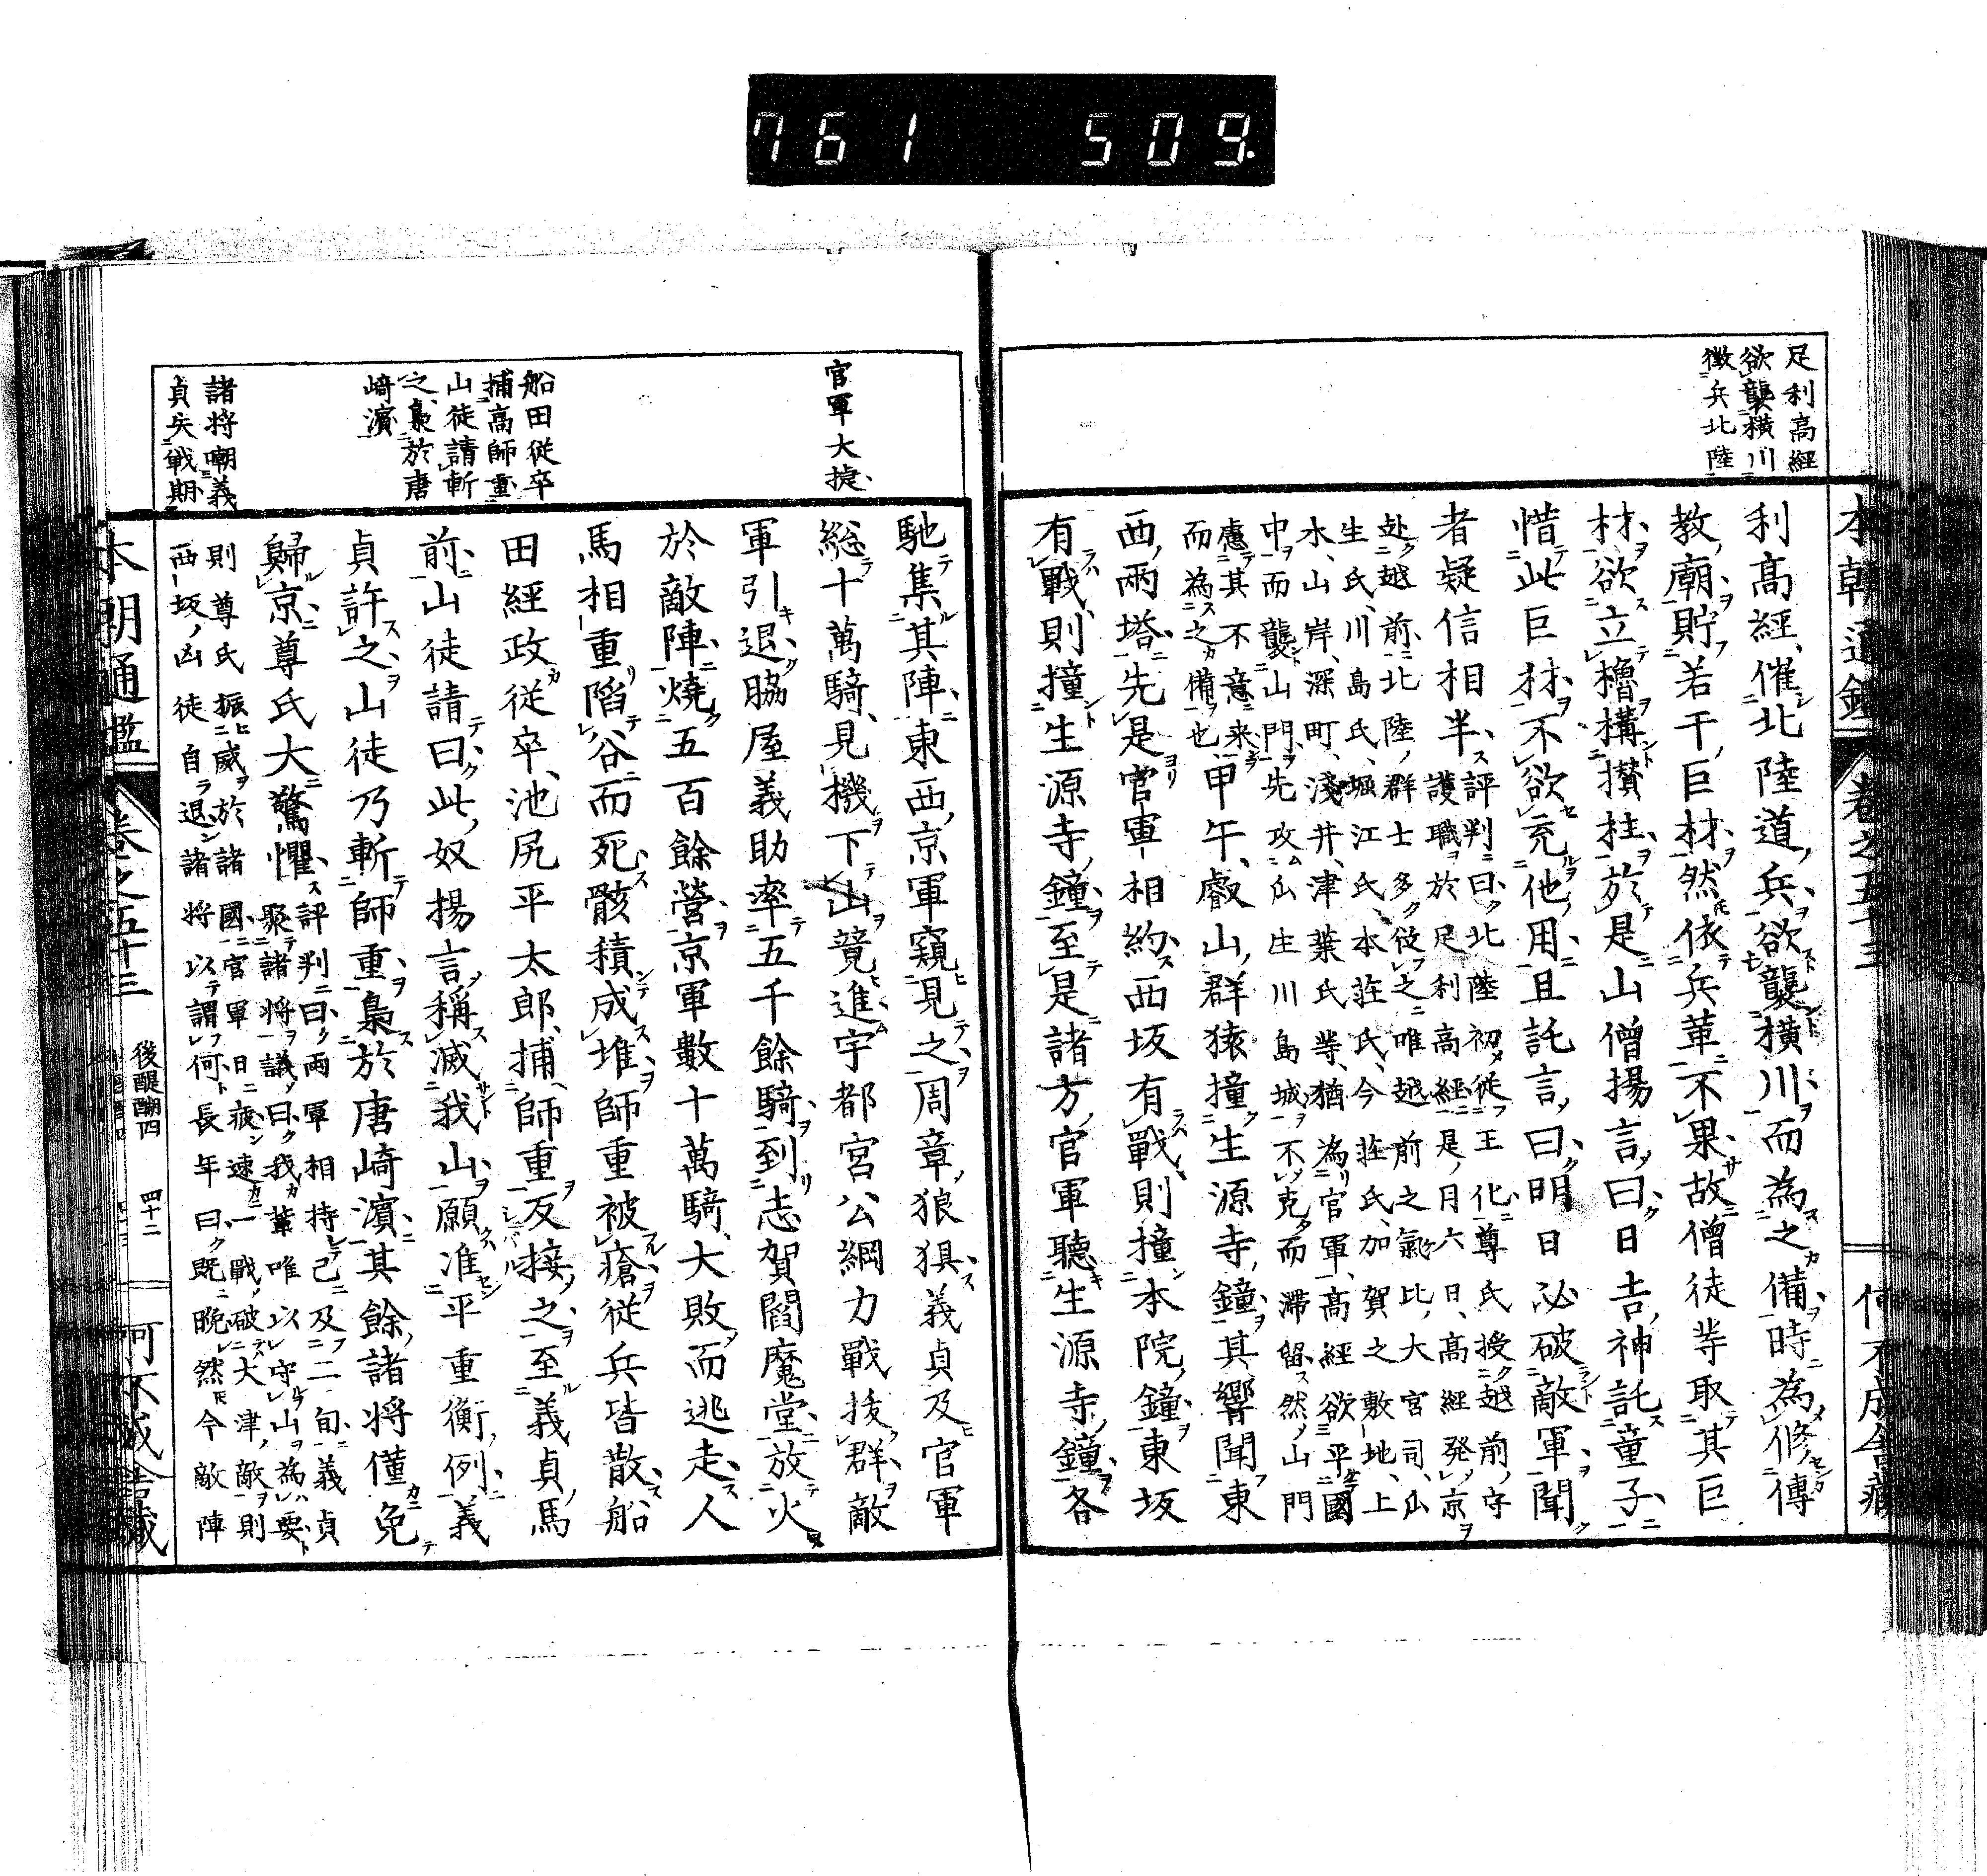 761 509.
足利高經
欲襲横川
徴兵北陸
本朝通鑑 卷之五十三 何不成舎藏
利高經催北陸道兵欲襲横川而為之備時為修傳
教廟貯若干巨材然依兵革不果故僧徒等取其巨
材欲立櫓構攅柱於是山僧揚言曰日吉神託童子
惜此巨材不欲充他用且託言曰明日必破敵軍聞
者疑信相半
評判曰北陸初從王化尊氏授越前守
護職於足利高經是月六日高經発京
赴越前北陸群士多從之唯越前之氣比大宮司瓜
生氏川島氏堀江氏本莊氏今莊氏加賀之敷地上
木山岸深町淺井津葉氏等猶為官軍高經欲平國
中而襲山門先攻瓜生川島城不克而滞留然山門
慮其不意来
而為之備也
甲午叡山群猿撞生源寺鐘其響聞東
西兩塔先是官軍相約西坂有戰則撞本院鐘東坂
有戰則撞生源寺鐘至是諸方官軍聽生源寺鐘各
官軍大捷
船田従卒
捕高師重
山徒請斬
之梟於唐
崎濱
諸将嘲義
貞失戦期
馳集其陣東西京軍窺見之周章狼狽義貞及官軍
総十萬騎見機下山競進宇都宮公綱力戰抜群敵
軍引退脇屋義助率五千餘騎到志賀閻魔堂放火
於敵陣燒五百餘營京軍數十萬騎大敗而逃走人
馬相重陷谷而死骸積成堆師重被瘡従兵皆散船
田經政従卒池尻平太郎捕師重反接之至義貞馬
前山徒請曰此奴揚言稱滅我山願准平重衡例義
貞許之山徒乃斬師重梟於唐崎濱其餘諸将僅免
歸京尊氏大驚懼
評判曰兩軍相持已及二旬義貞
聚諸将議曰我輩唯以守山為要
則尊氏振威於諸國官軍日疲速一戰破大津敵則
西坂凶徒自退諸将以謂何長年曰既晩然今敵陣
本朝通鑑 卷之五十三 後醍醐四 四十二 何不成舎藏